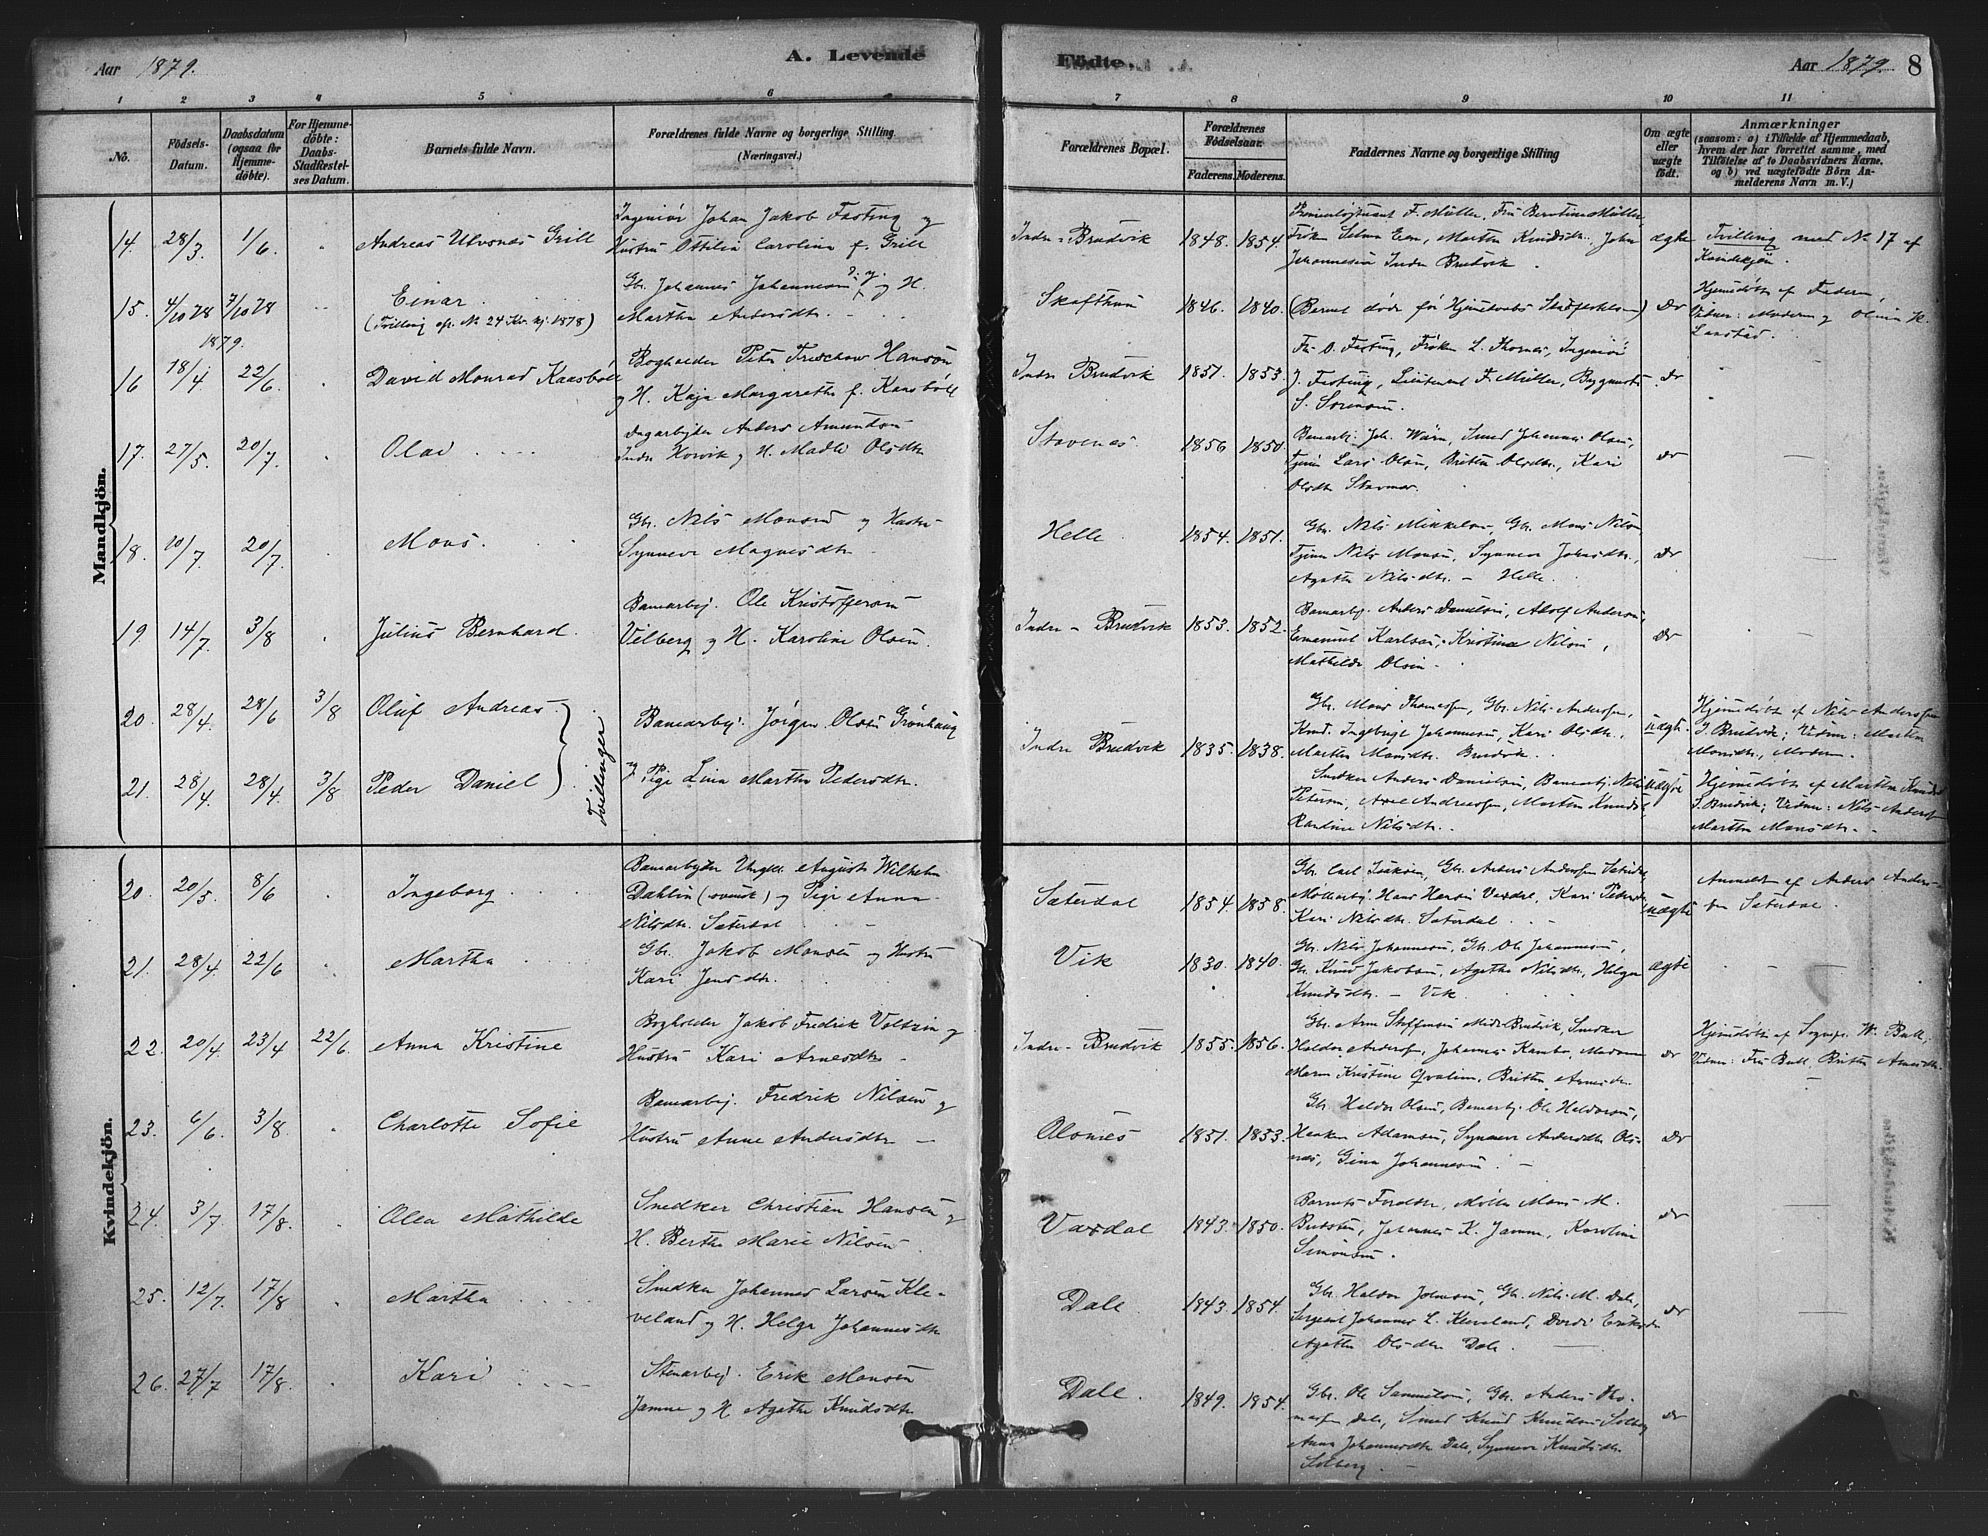 Aar 1879. A. Levende
Födte. Aar 1879. 8
1 2 3 4 5 6 7 8 9 10 11
No. Födsels-Datum. Daabsdatum (ogsaa for Hjemmedöbte). For Hjemmedöbte: Daabs-Stadfæstelses Datum. Barnets fulde Navn. Forældrenes fulde Navne og borgerlige Stilling. (Næringsvei.)
Forældrenes Bopæl. Forældrenes Födselsaar. Faderens. Moderens. Faddernes Navne og borgerlige Stilling Om ægte eller uægte födt. Anmærkninger (saasom: a) i Tilfælde af Hjemmedaab, hvem der har forrettet samme, med Tilföielse af to Daabsvidners Navne. og b) ved uægtefödte Börn Anmelderens Navn m. V.)
Mandkjön.
14. 28/3 1/6. Andreas Ulvsnes Grill
Ingeniör Johan Jakob Fasting og
Hustru Ottilia Carolina f. Grill
Indre-Brudvik 1848. 1854.
Premierløjtnant F. Müller, Fru Berntine Müller,
Frøken Selma Een, Martha Knudsdtr., John
Johannesen Indre Brudvik.
ægte
Tvilling med No 17 af
Kvindekjön.
15. 4/10 78 7/10 78 Einar.
(Tvilling af No 24 Kv. kj. 1878)
Gbr. Johannes Johannesen og H.
Martha Andersdtr.
Skafthun 1846. 1840.
(Barnet døde før Hjemmedaabs Stadfæstelsen)
Do
Hjemmedöbt af Faderen,
Vidner: Moderen og
1879.
16 18/4 22/6. David Monrad Kaasböll
Bogholder Peter Fredchow Hanson
og H. Kaja Margarethe f. Kaasböll
Indre Brudvik 1851. 1853.
Fr. O. Fasting, Frøken L. Thornæs, Ingeniör
J. Fasting, Lieutenant F. Müller, Bygmester
S. Sørensen.
Do
17. 27/5. 20/7. Olai
Dagarbejder Anders Amundsen
Indre Horvik og H. Madli Olsdtr.
Stavenes 1856 1850.
Banearb. Joh. Wärn, Smed Johannes Olsen,
Tjener Lars Olsen, Britha Olsdtr., Kari
Olsdtr.
Do
18. 10/7 20/7. Mons.
Gbr. Nils Monsen og Hustru
Synneve Magnesdtr.
Helle. 1854. 1851.
Gbr. Nils Mikkelsen, Gbr. Mons Nilsen
Tjener Nils Monsen, Synneve Johnsdtr.,
Agatha Nilsdtr. – Helle.
Do
19 14/7. 3/8 Julius Bernhard.
Banearbej. Ole Kristoffersen
Vilberg og H. Karoline Olsen.
Indre-Brudvik 1853. 1852.
Banearbej. Anders Danielsen, Adolf Andersen,
Emanuel Karlsen, Kristina Nilsen,
Mathilde Olsen.
Do
20. 28/4. 28/6 3/8 Oluf Andreas.
21. 28/4. 28/4. 3/8 Peder Daniel
Tvillinger
Banearbej. Jørgen Olsen Grönhaug
og Pige Lina Martha Pedersdtr.
Indre Brudvik 1835. 1838.
Gbr. Mons Thomassen, Gbr. Nils Andersen,
Knud Ingebrigt Johannesen, Kari Olsdtr.,
Martha Monsdtr. Brudvik.
uægte
Hjemmedöbt af Nils Andersen
I. Brudvik; Vidner: Martha
Monsdtr., Moderen.
Snedker Anders Danielsen, Banearbej. Nils
Petersen, Axel Andreassen, Martha Knudsdtr,
Randine Nilsdtr.
uægte
Hjemmedöbt af Martha Knudsd.
I. Brudvik; Vidner: Nils Anders.
Martha Monsdtr.
Kvindekjön.
20. 20/5. 8/6 Ingeborg
Banearbejder Ungk. August Wilhelm
Dahlin (svensk) og Pige Anna
Nilsdtr. Sæterdal
Sæterdal 1854. 1858.
Gbr. Carl Isaksen, Gbr. Anders Andersen Sæterdal,
Møllearb. Hans Hansen Vaxdal, Kari Pedersdtr,
Kari Nilsdtr. Sæterdal
uægte
Anmeldt af Anders Andersen Sæterdal.
21. 28/4 22/6 Martha
Gbr. Jakob Monsen og Hustru
Kari Jensdtr.
Vik 1830. 1840.
Gbr. Nils Johannesen, Gbr. Ole Johannesen,
Gbr. Knud Jakobsen, Agatha Nilsdtr., Helga
Knudsdtr. – Vik
ægte
22. 20/4 23/4 22/6. Anna Kristine
Bogholder Jakob Fredrik Veltzin og
Hustru Kari Arnesdtr.
Indre-Brudvik 1855. 1856.
Gbr. Arne Steffensen Midt-Brudvik, Snedker
Haldor Andersen, Johannes Kambo, Madame
Maren Kristine Qvalem, Britha Arnesdtr.
Do
Hjemmedöbt af Sognepr. W. Bull,
Vidner: Fru Bull, Britha Arnesdtr.
23. 6/6. 3/8. Charlotte Sofie
Banearbej. Fredrik Nilsen og
Hustru Anne Andersdtr.
Olsnes 1851. 1853.
Gbr. Haldor Olsen, Banearbej. Ole Haldorsen,
Haaken Adamsen, Synneve Andersdtr. Olsnæs, Gina Johannesen.
Do
24. 3/7. 17/8. Olea Mathilde
Snedker Christian Hansen og
H. Berthe Marie Nilsen.
Vaxdal 1843. 1850.
Barnets Forældre, Møller Mons M.
Johannes K. Jamne, Karoline
Simonsen.
Do
25. 12/7. 17/8 Martha
Snedker Johannes Larsen Kleveland og H. Helga Johannesdtr.
Dale. 1843. 1854.
Gbr. Haldor Johnsen, Gbr. Nils M. Dale,
Sergeant Johannes L. Kleveland, Dordi Eriksdtr
Agatha Olsdtr Dale.
Do
26. 27/7 17/8. Kari
Stenarbej. Erik Monsen
Jamne og H. Agatha Knudsdtr
Dale. 1849. 1854.
Gbr. Ole Samuelsen, Gbr. Anders Thomassen Dale, Smed Knud Knudsen Solberg
Anna Johannesdtr. Dale, Synneve Knudsdtr.
Solberg.
Do